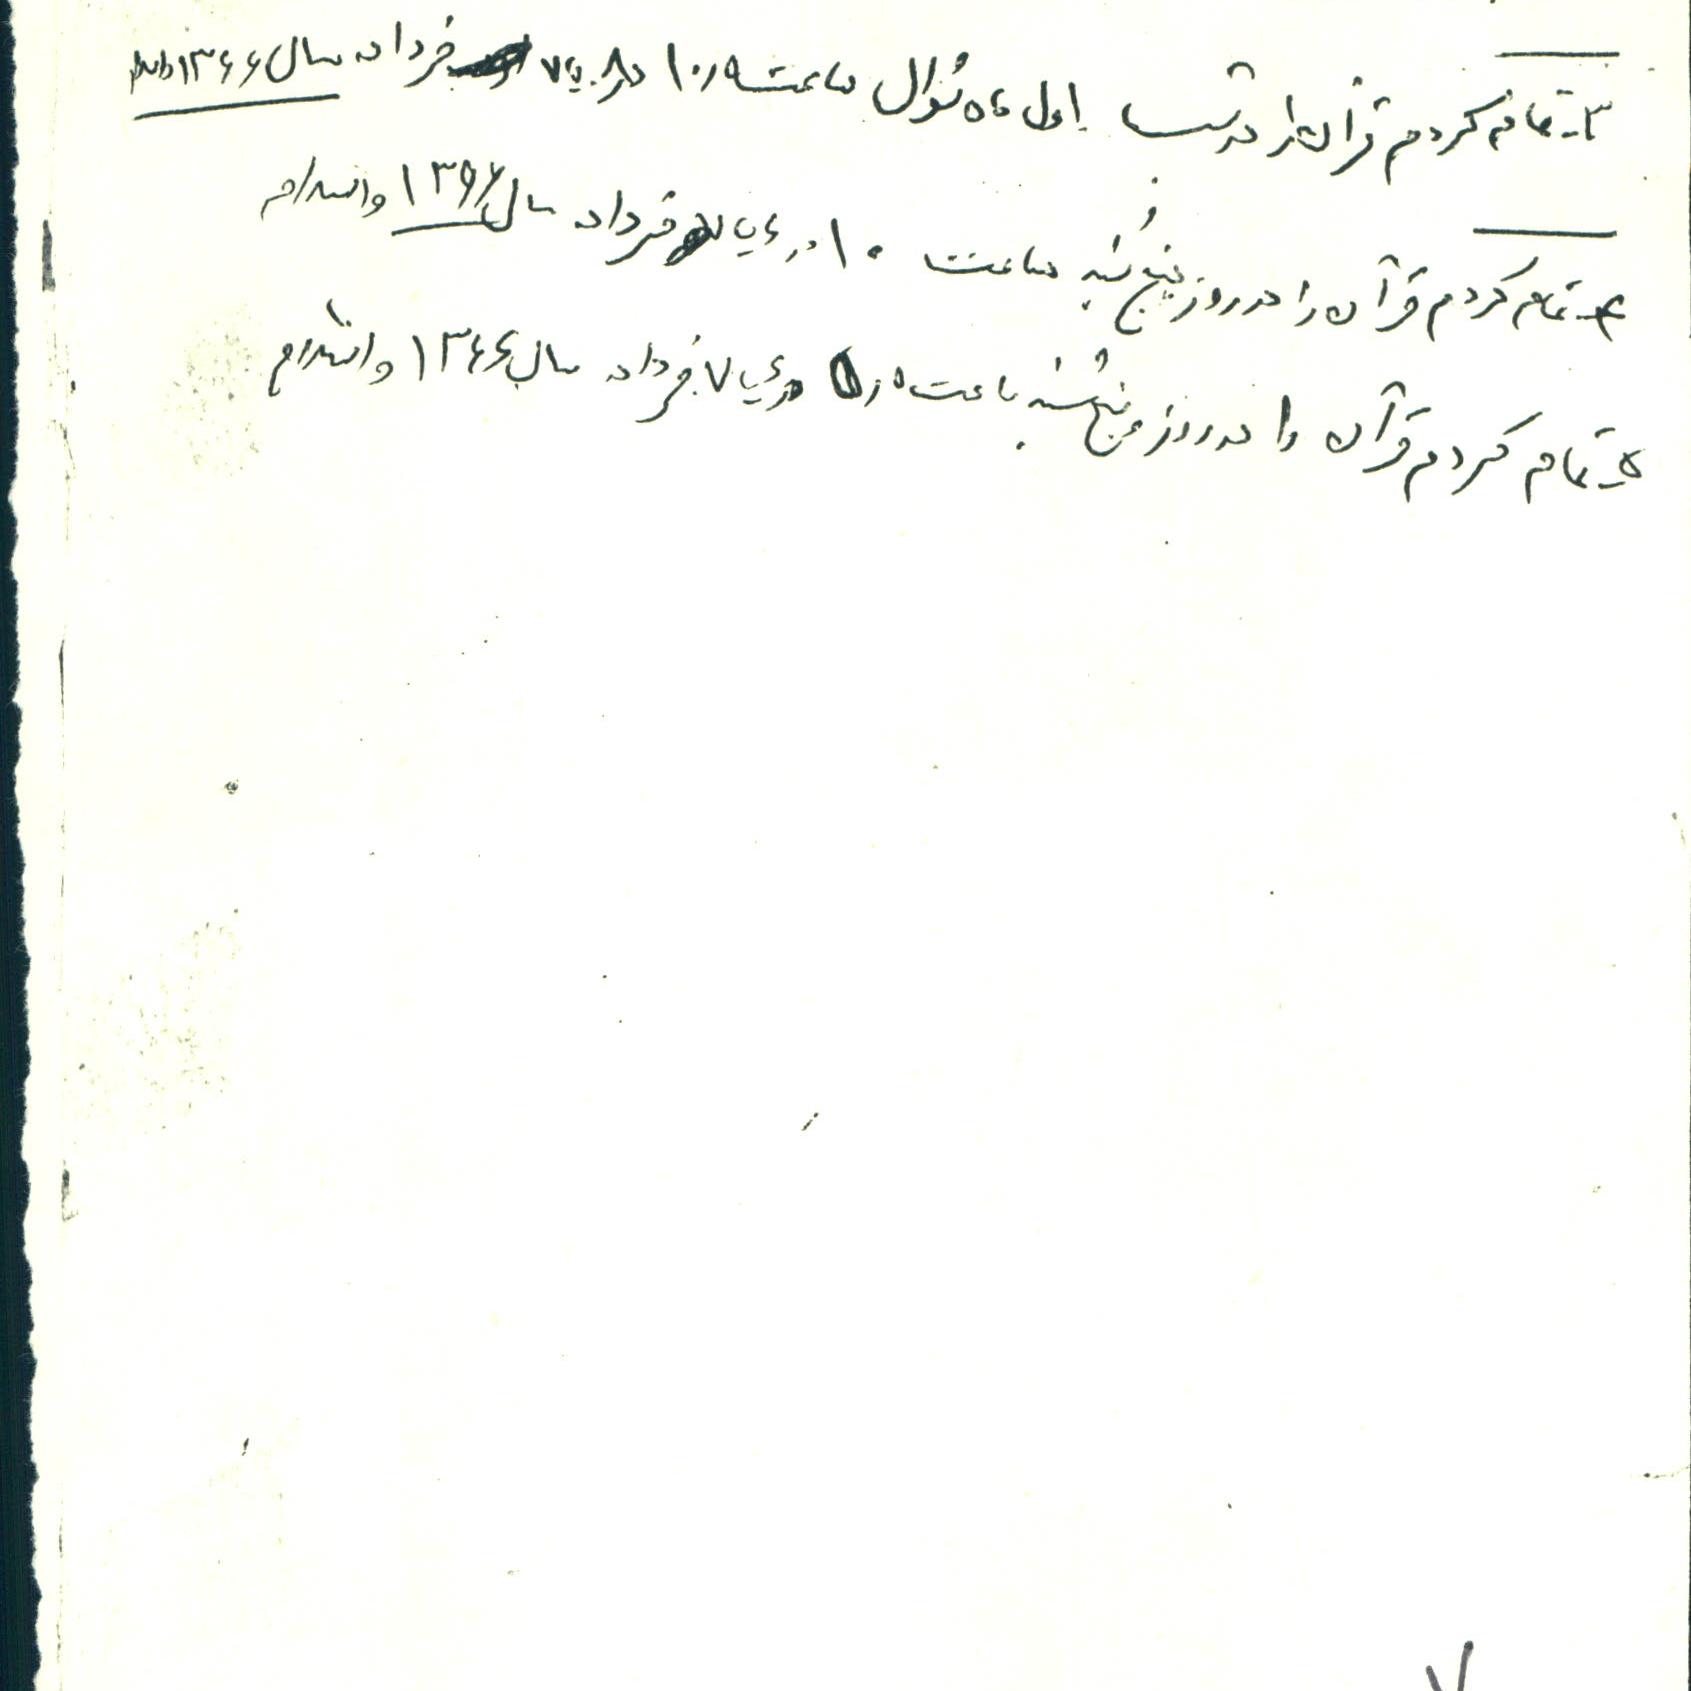 ۳ـ تمام کردم قرآن را در شب اول ماه شوال ساعت ۱۰٫۵ در ۷ خرداد سال ۱۳۶۶ والسلام
۴ـ تمام کردم قرآن را در روز پنج شنبه ساعت ۱۰ در ۷ خرداد سال ۱۳۶۶ والسلام
۵ـ تمام کردم قرآن را در روز پنج شنبه ساعت ۵ در ۷ خرداد سال ۱۳۶۶ والسلام
۷